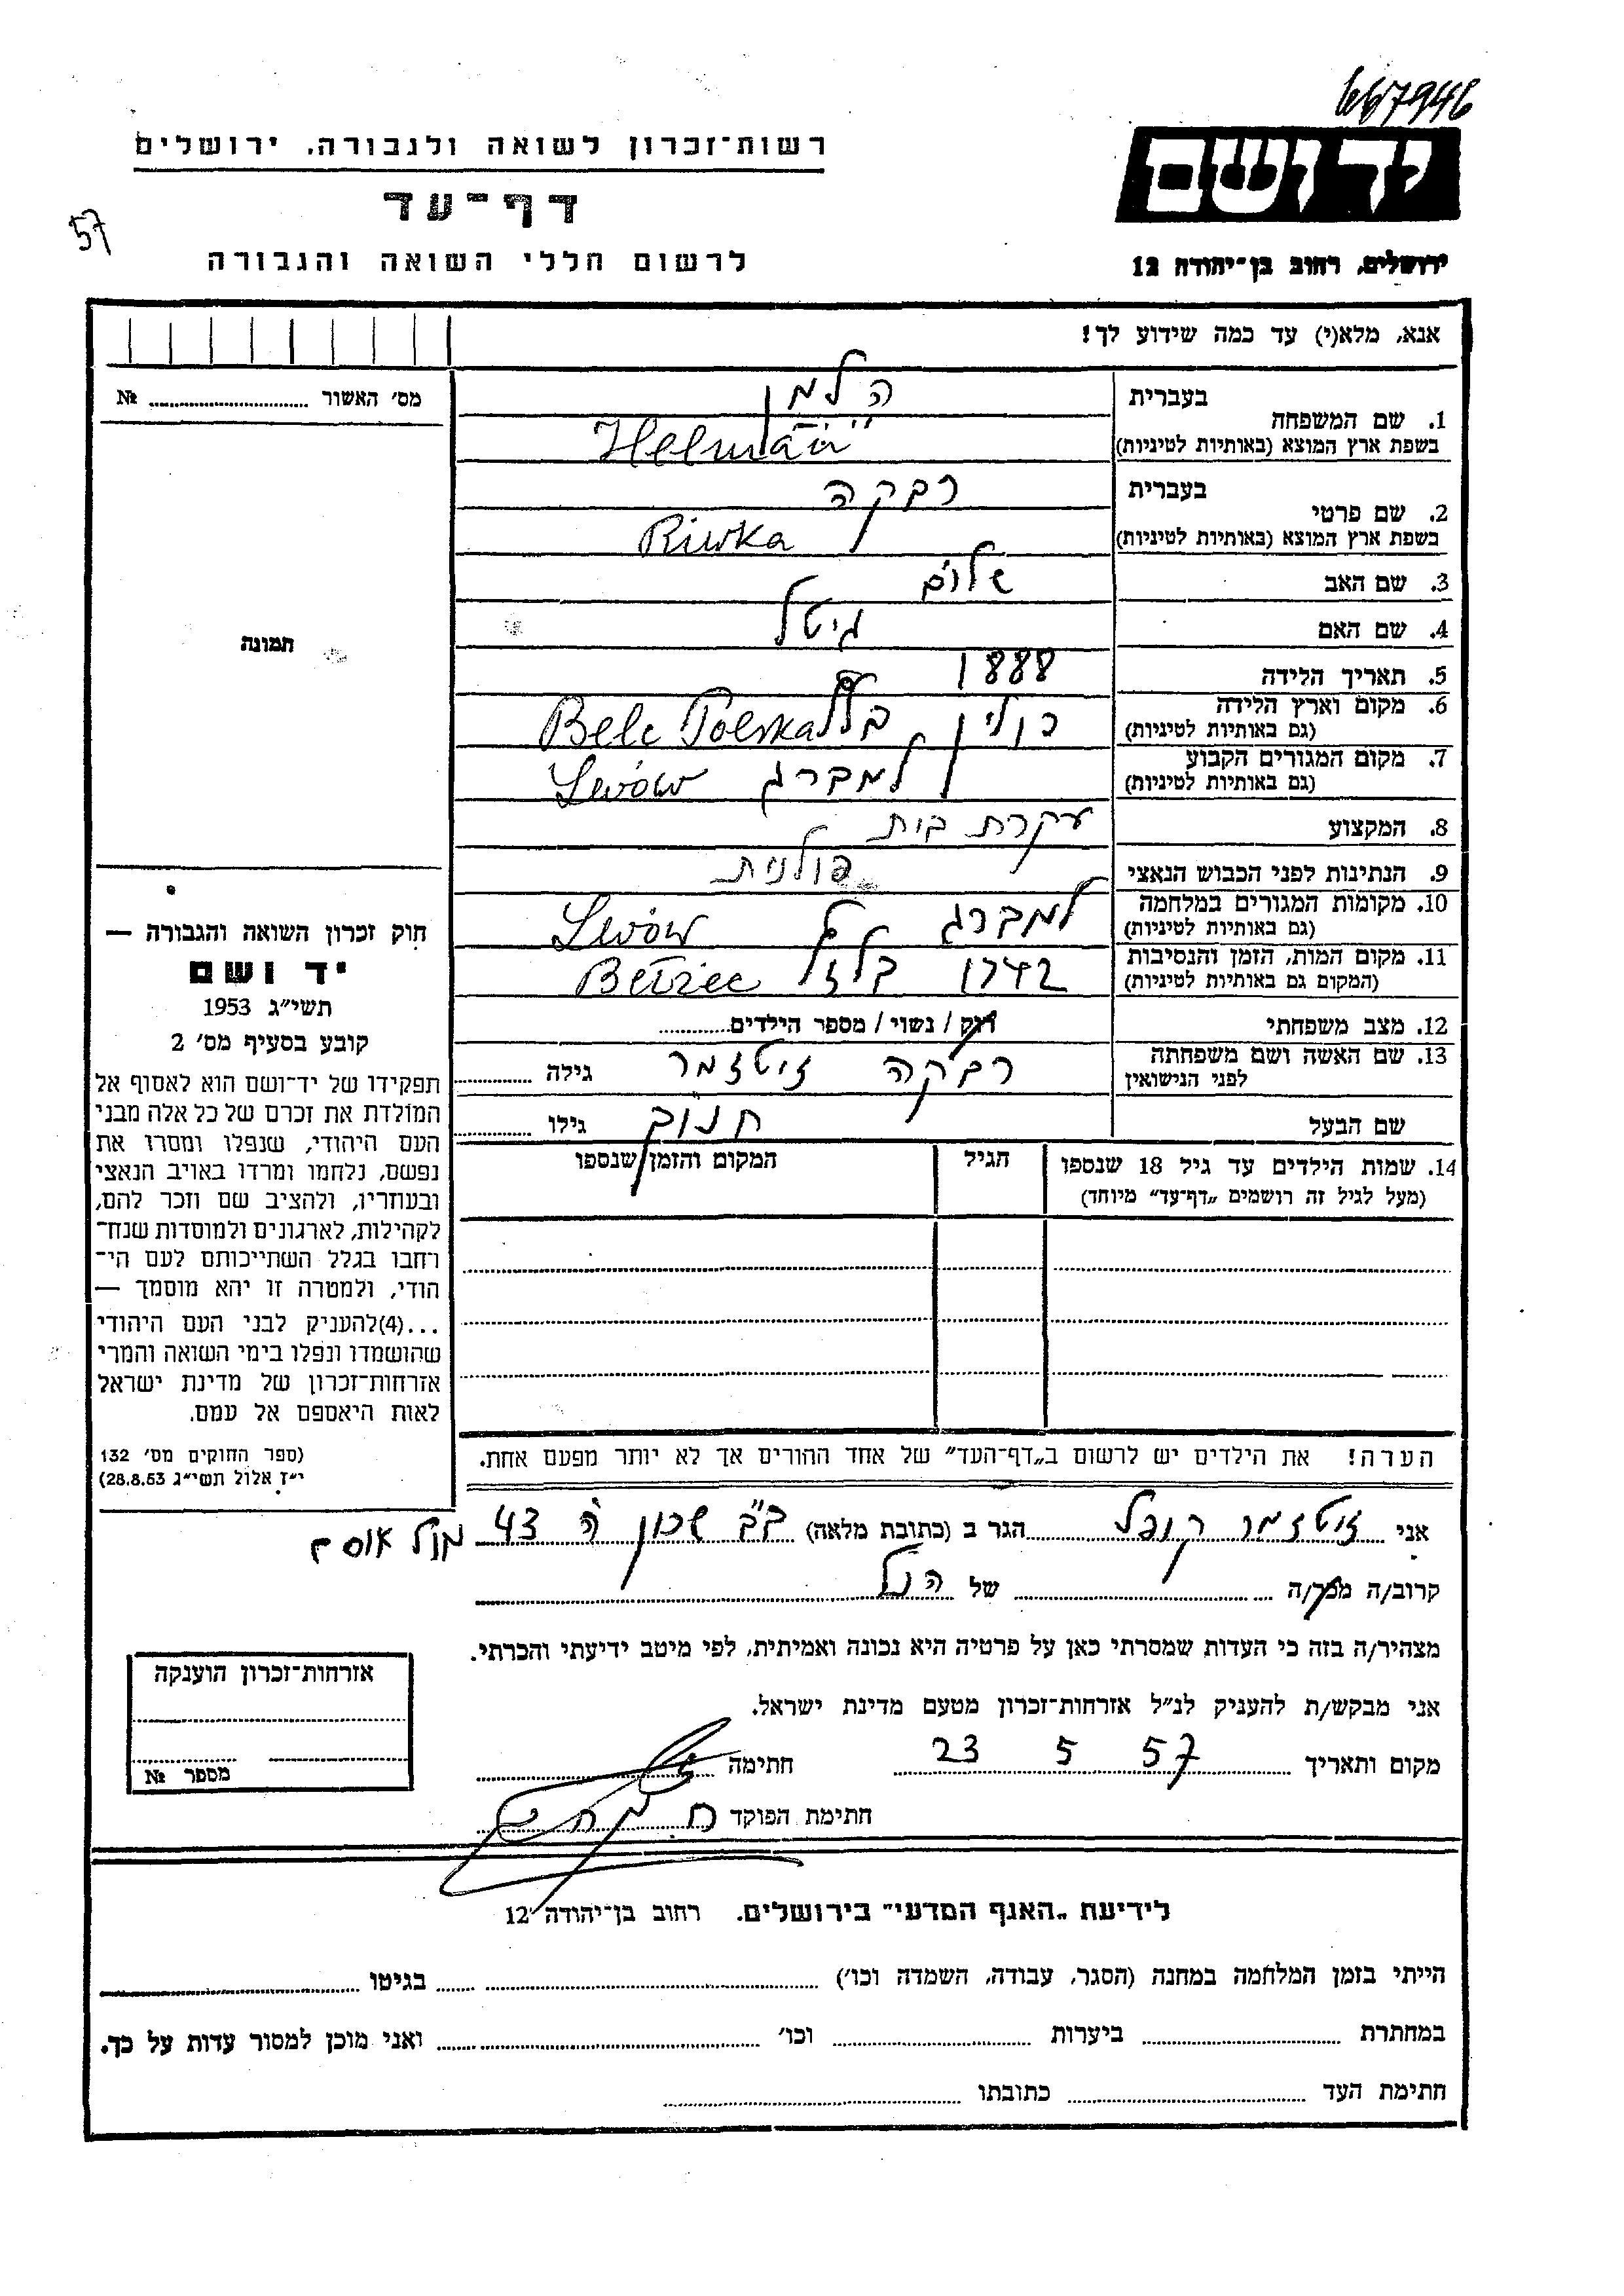 667946
רשות־זכרון לשואה ולגבורה, ירושלים
יד ושם
דף־עד
57
לרשום חללי השואה והגבורה
ירושלים, רחוב בן־יהודה 12
אנא, מלא(י) עד כמה שידוע לך!
מס׳ האשור № ........
בעברית הלמן
1. שם המשפחה
בשפת ארץ המוצא (באותיות לטיניות) Helman
בעברית רבקה
2. שם פרטי
בשפת ארץ המוצא (באותיות לטיניות) Riwka
3. שם האב שלום
4. שם האם גיטל
תמונה
5. תאריך הלידה 1888
6. מקום וארץ הלידה פולין בלז Belz Polska
(גם באותיות לטיניות)
7. מקום המגורים הקבוע למברג Lwów
(גם באותיות לטיניות)
8. המקצוע עקרת בית
9. הנתינות לפני הכבוש הנאצי פולנית
10. מקומות המגורים במלחמה למברג Lwów
(גם באותיות לטיניות)
11. מקום המות, הזמן והנסיבות 1942 בלזץ Bełżec
(המקום גם באותיות לטיניות)
12. מצב משפחתי רוק / נשוי / מספר הילדים........
13. שם האשה ושם משפחתה רבקה זיטזמר גילה ........
לפני הנישואין
שם הבעל חנוך גילו ........
14. שמות הילדים עד גיל 18 שנספו הגיל המקום והזמן שנספו
(מעל לגיל זה רושמים „דף־עד״ מיוחד)
חוק זכרון השואה והגבורה —
יד ושם
תשי״ג 1953
קובע בסעיף מס׳ 2
תפקידו של יד־ושם הוא לאסוף אל
המולדת את זכרם של כל אלה מבני
העם היהודי, שנפלו ומסרו את
נפשם, נלחמו ומרדו באויב הנאצי
ובעוזריו, ולהציב שם וזכר להם,
לקהילות, לארגונים ולמוסדות שנח־
רחבו בגלל השתייכותם לעם הי־
הודי, ולמטרה זו יהא מוסמך —
...(4)להעניק לבני העם היהודי
שהושמדו ונפלו בימי השואה והמרי
אזרחות־זכרון של מדינת ישראל
לאות היאספם אל עמם.
(ספר החוקים מס׳ 132
י״ז אלול תשי״ג 28.8.53)
הערה! את הילדים יש לרשום ב„דף־העד״ של אחד ההורים אך לא יותר מפעם אחת.
אני זיטזמר קופל הגר ב (כתובת מלאה) ב״ב שכון ה 43 מול אוסם
קרוב/ה מכר/ה ........ של הנ״ל
מצהיר/ה בזה כי העדות שמסרתי כאן על פרטיה היא נכונה ואמיתית, לפי מיטב ידיעתי והכרתי.
אני מבקש/ת להעניק לנ״ל אזרחות־זכרון מטעם מדינת ישראל.
מקום ותאריך 23 5 57 חתימה
חתימת הפוקד
אזרחות־זכרון הוענקה
מספר №
לידיעת „האגף המדעי״ בירושלים, רחוב בן־יהודה 12
הייתי בזמן המלחמה במחנה (הסגר, עבודה, השמדה וכו׳) ........ בגיטו ........
במחתרת ........ ביערות ........ וכו׳ ........ ואני מוכן למסור עדות על כך.
חתימת העד ........ כתובתו ........